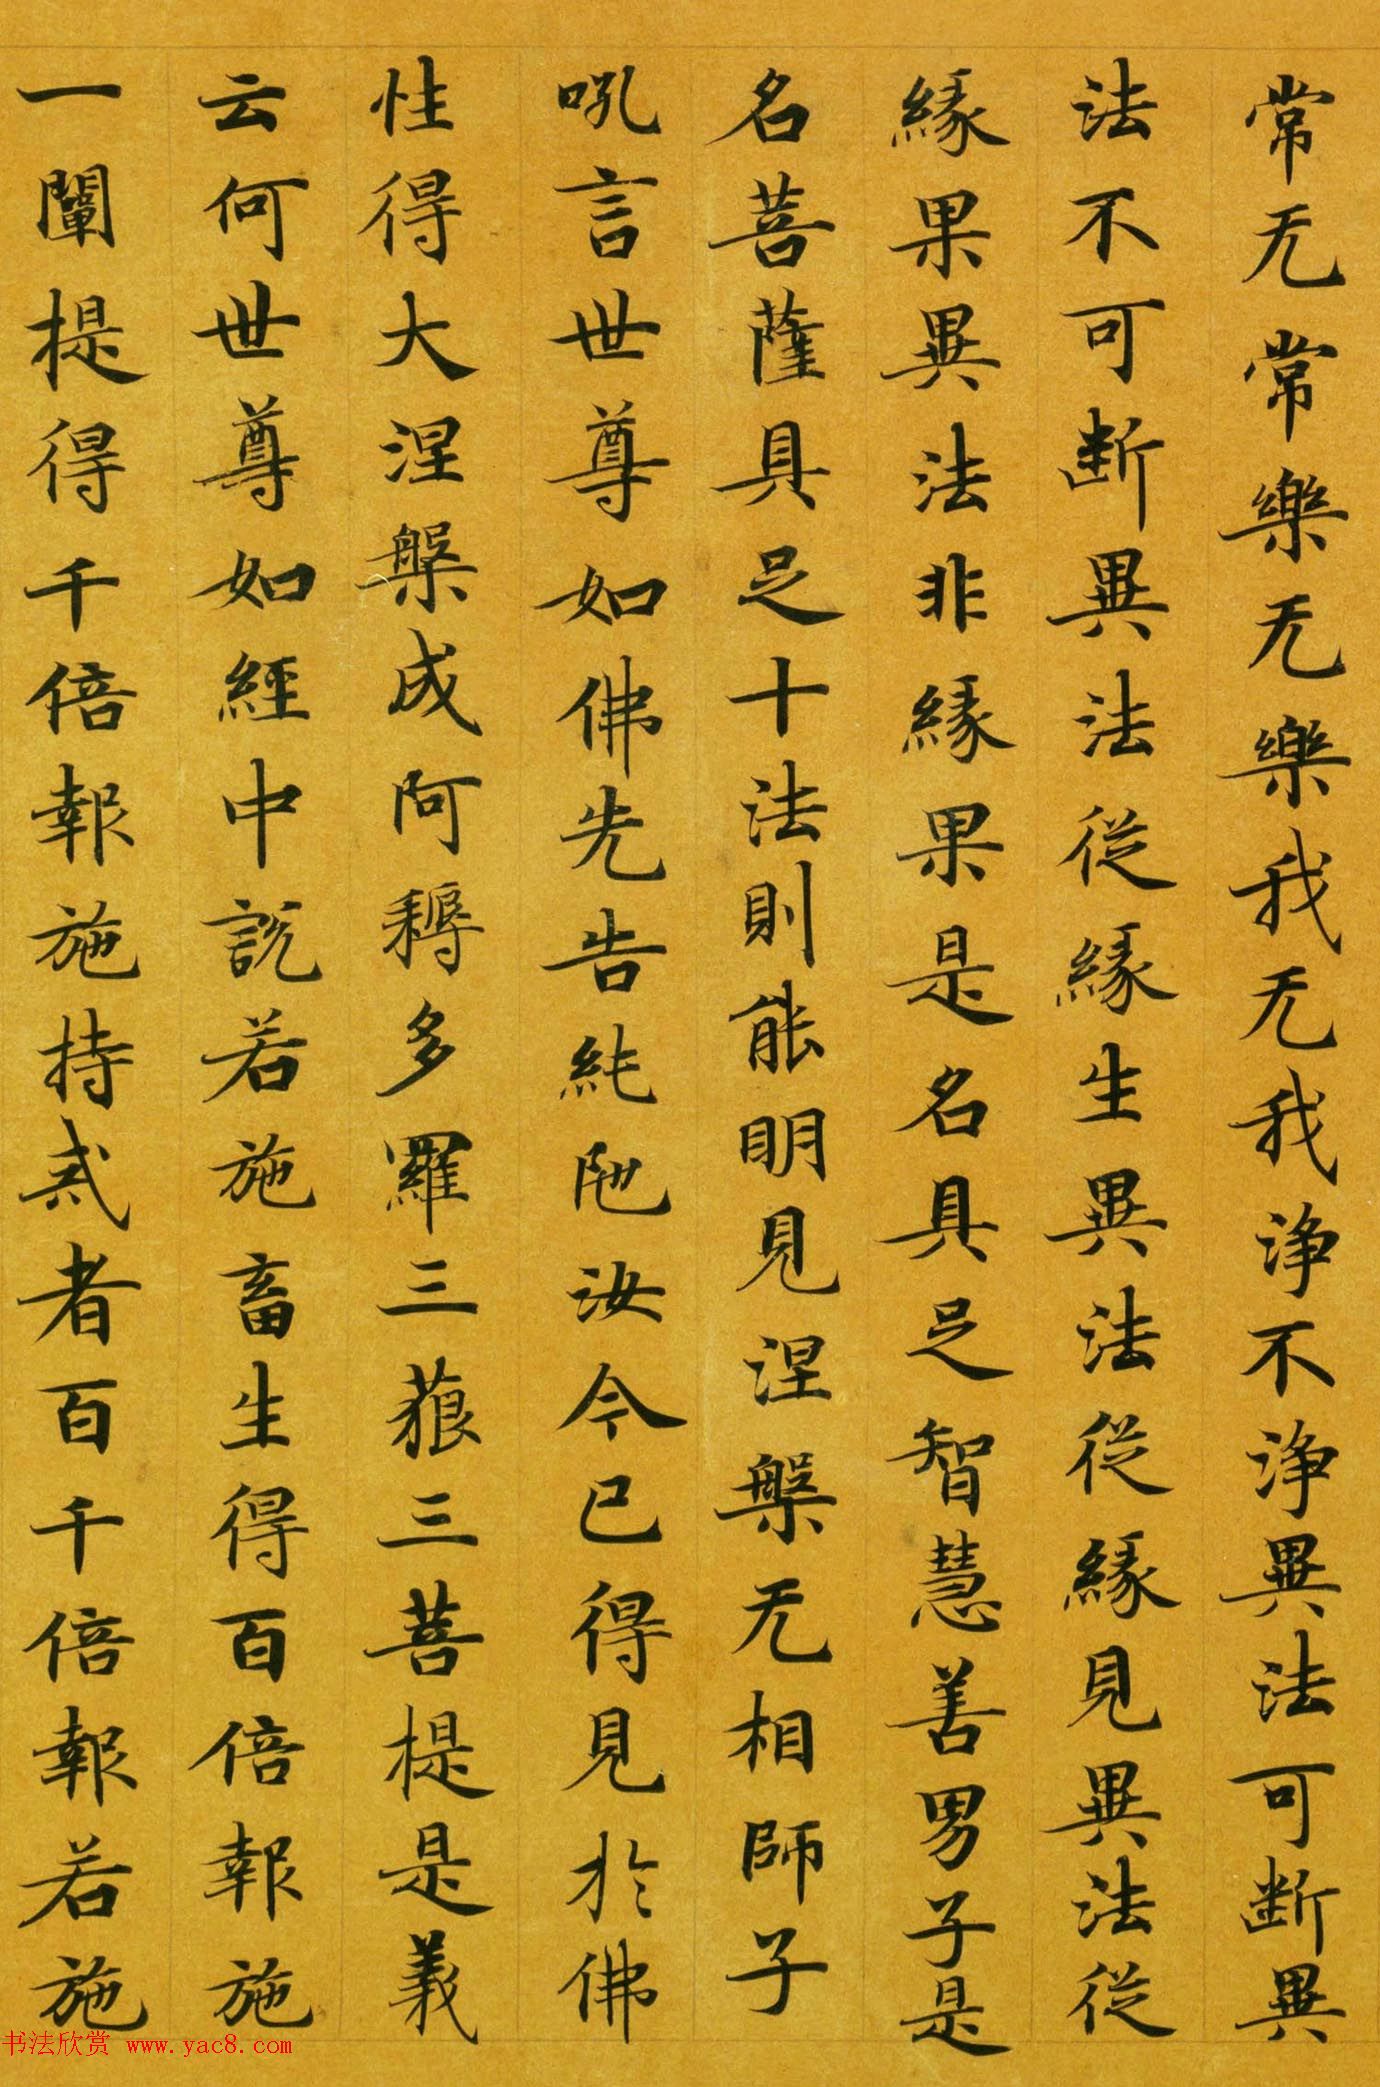 常无常樂无樂我无我淨不淨異法可斷異
法不可斷異法從緣生異法從緣見異法從
緣果異法非緣果是名具足智慧善男子是
名菩薩具足十法則能明見涅槃无相師子
吼言世尊如佛先告純陁汝今已得見於佛
性得大涅槃成阿耨多羅三藐三菩提是義
云何世尊如經中說若施畜生得百倍報施
一闡提得千倍報施持戒者百千倍報若施
书法欣赏 www.yac8.com